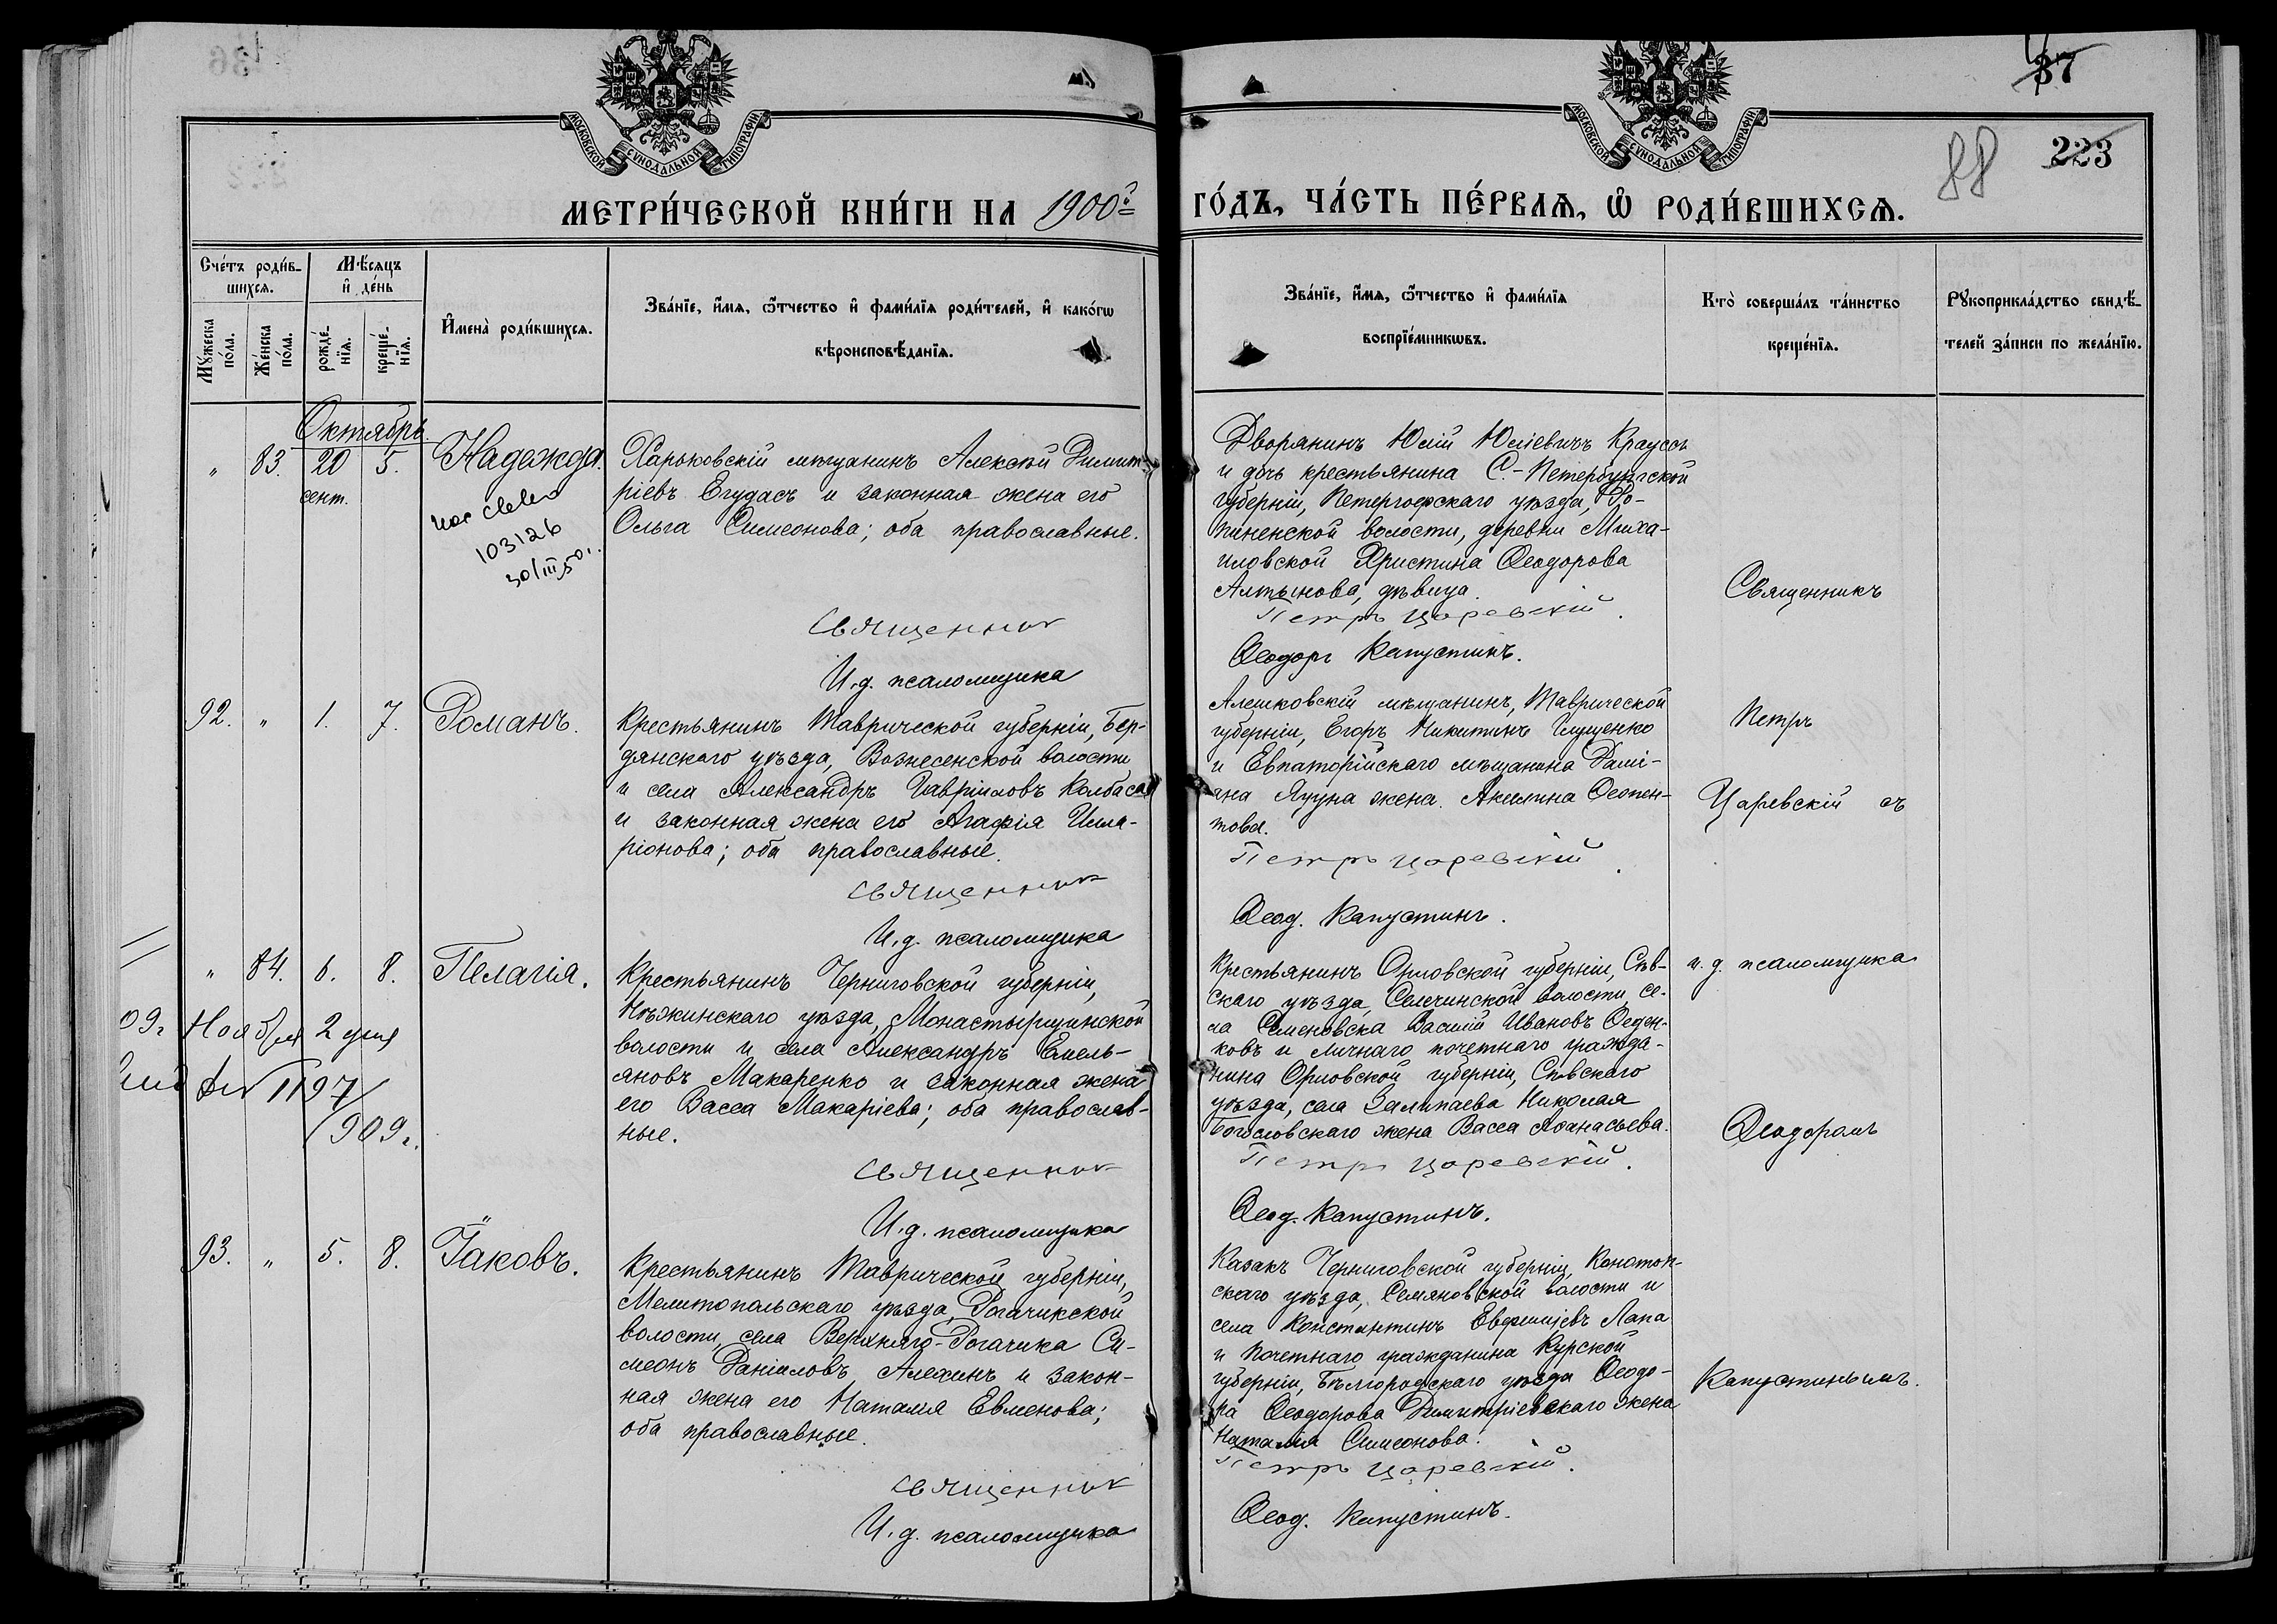 37
88
223
МОСКОВСКОЙ СѴНОДАЛЬНОЙ ТИПОГРАФІИ
МОСКОВСКОЙ СѴНОДАЛЬНОЙ ТИПОГРАФІИ
МЕТРИ́ЧЕСКОЙ КНИ́ГИ НА 1900й ГО́ДЪ, ЧА́СТЬ ПЕ́РВАѦ, Ѡ҆ РОДИ́ВШИХСѦ.
Сче́тъ роди́в-
шихсѧ.
Мꙋ́жеска
по́ла.
Же́нска
по́ла.
Мѣ́сѧцъ
и҆ де́нь
рожде́-
нїѧ.
креще́-
нїѧ.
И҆мена̀ роди́вшихсѧ.
Зва́нїе, и҆́мѧ, ѻ҆́тчество и҆ фами́лїѧ роди́телей, и҆ како́гѡ
вѣроисповѣ́данїѧ.
Зва́нїе, и҆́мѧ, ѻ҆́тчество и҆ фами́лїѧ
воспрїе́мникѡвъ.
Кто̀ соверша́лъ та́инство
креще́нїѧ.
Рꙋкоприкла́дство свидѣ́-
телей за́писи по жела́нїю.
Октябрь
" 83. 20 5. Надежда.
сент.
103126
30/III 50 г.
Харьковскій мѣщанинъ Алексѣй Димит-
ріевъ Егудасъ и законная жена его
Ольга Симеонова; оба православные.
Священник
И. д. псаломщика
Дворянинъ Юлій Юліевичъ Крауссъ
и дочь крестьянина С.-Петербургской
губерніи, Петергофскаго уѣзда, Ро-
пшненской волости, деревни Миха-
иловской Христина Ѳеодорова
Алтынова, дѣвица.
Петръ Царевскій.
Ѳеодоръ Капустинъ.
92. " 1. 7. Романъ.
Крестьянинъ Таврической губерніи, Бер-
дянскаго уѣзда, Вознесенской волости
и села Александръ Гавріиловъ Колбаса
и законная жена его Агафія Ила-
ріонова; оба православные.
Священник
И. д. псаломщика
Алешковскій мѣщанинъ, Таврической
губерніи, Егоръ Никитинъ Глущенко
и Евпаторійскаго мѣщанина Дамі-
ана Яцуна жена Акилина Ѳеопен-
това.
Петръ Царевскій.
Ѳеод. Капустинъ.
" 84. 6. 8. Пелагія.
09 г. Ноября 2 дня
№ 1197/
909 г.
Крестьянинъ Черниговской губерніи,
Нѣжинскаго уѣзда, Монастырищинской
волости и села Александръ Емель-
яновъ Макаренко и законная жена
его Васса Макаріева; оба православ-
ные.
Священник
И. д. псаломщика
Крестьянинъ Орловской губерніи, Сѣв-
скаго уѣзда, Селечинской волости, се-
ла Семеновска Василій Ивановъ Ѳеден-
ковъ и личнаго почетнаго гражда-
нина Орловской губерніи, Сѣвскаго
уѣзда, села Залипаева Николая
Богословскаго жена Васса Аѳанасьева.
Петръ Царевскій.
Ѳеод. Капустинъ.
93. " 5. 8. Іаковъ.
Крестьянинъ Таврической губерніи,
Мелитопольскаго уѣзда, Рогачикской
волости, села Верхняго-Рогачика Си-
меонъ Даніиловъ Алехинъ и закон-
ная жена его Наталія Евменова;
оба православные.
Священник
И. д. псаломщика
Казакъ Черниговской губерніи, Конотоп-
скаго уѣзда, Семяновской волости и
села Константинъ Евфиміевъ Лапа
и почетнаго гражданина Курской
губерніи, Бѣлгородскаго уѣзда Ѳеодо-
ра Ѳеодорова Димитріевскаго жена
Наталія Симеонова.
Петръ Царевскій.
Ѳеод. Капустинъ.
Священникъ
Петръ
Царевскій съ
и. д. псаломщика
Ѳеодоромъ
Капустинымъ.